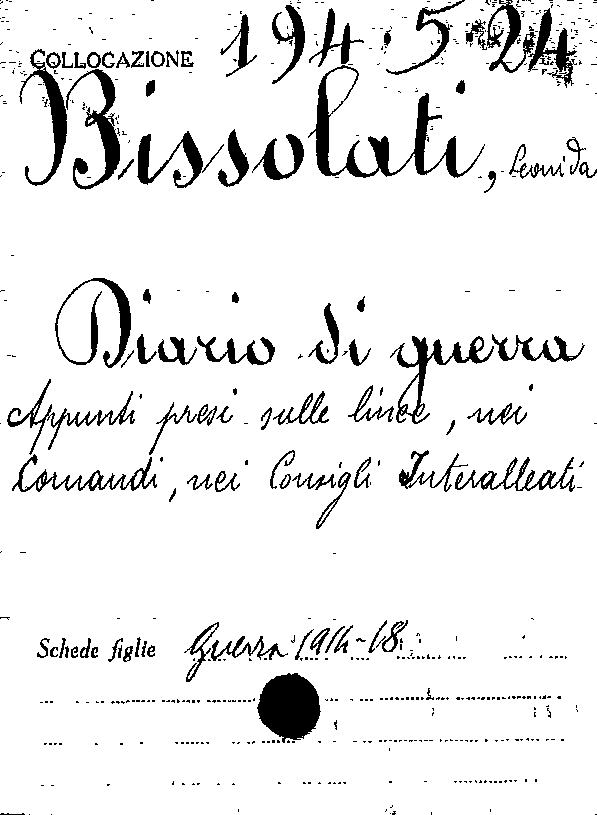 COLLOCAZIONE 194.5.24
Bissolati, Leonida
Diario di guerra
Appunti presi sulle linee, nei
Comandi, nei Consigli Interalleati
Schede figlie Guerra 1914-18